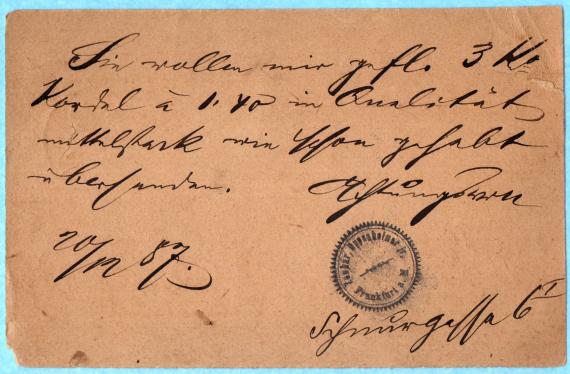 Sie wollen mir gefl. 3 Ko
Kordel à 1.40 in Qualität
mittelstark wie schon gehabt
übersenden. Achtungsvoll
20/12 87.
Oppenheimer jr.
Frankfurt a. M
Schnurgasse 6I